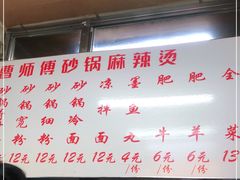 曹师傅砂锅麻辣烫
砂锅宽粉
12元
砂锅细粉
12元
砂锅冷面
12元
凉拌面
12元
墨鱼丸
4元/份
肥牛
6元/份
肥羊
6元/份
全菜
13